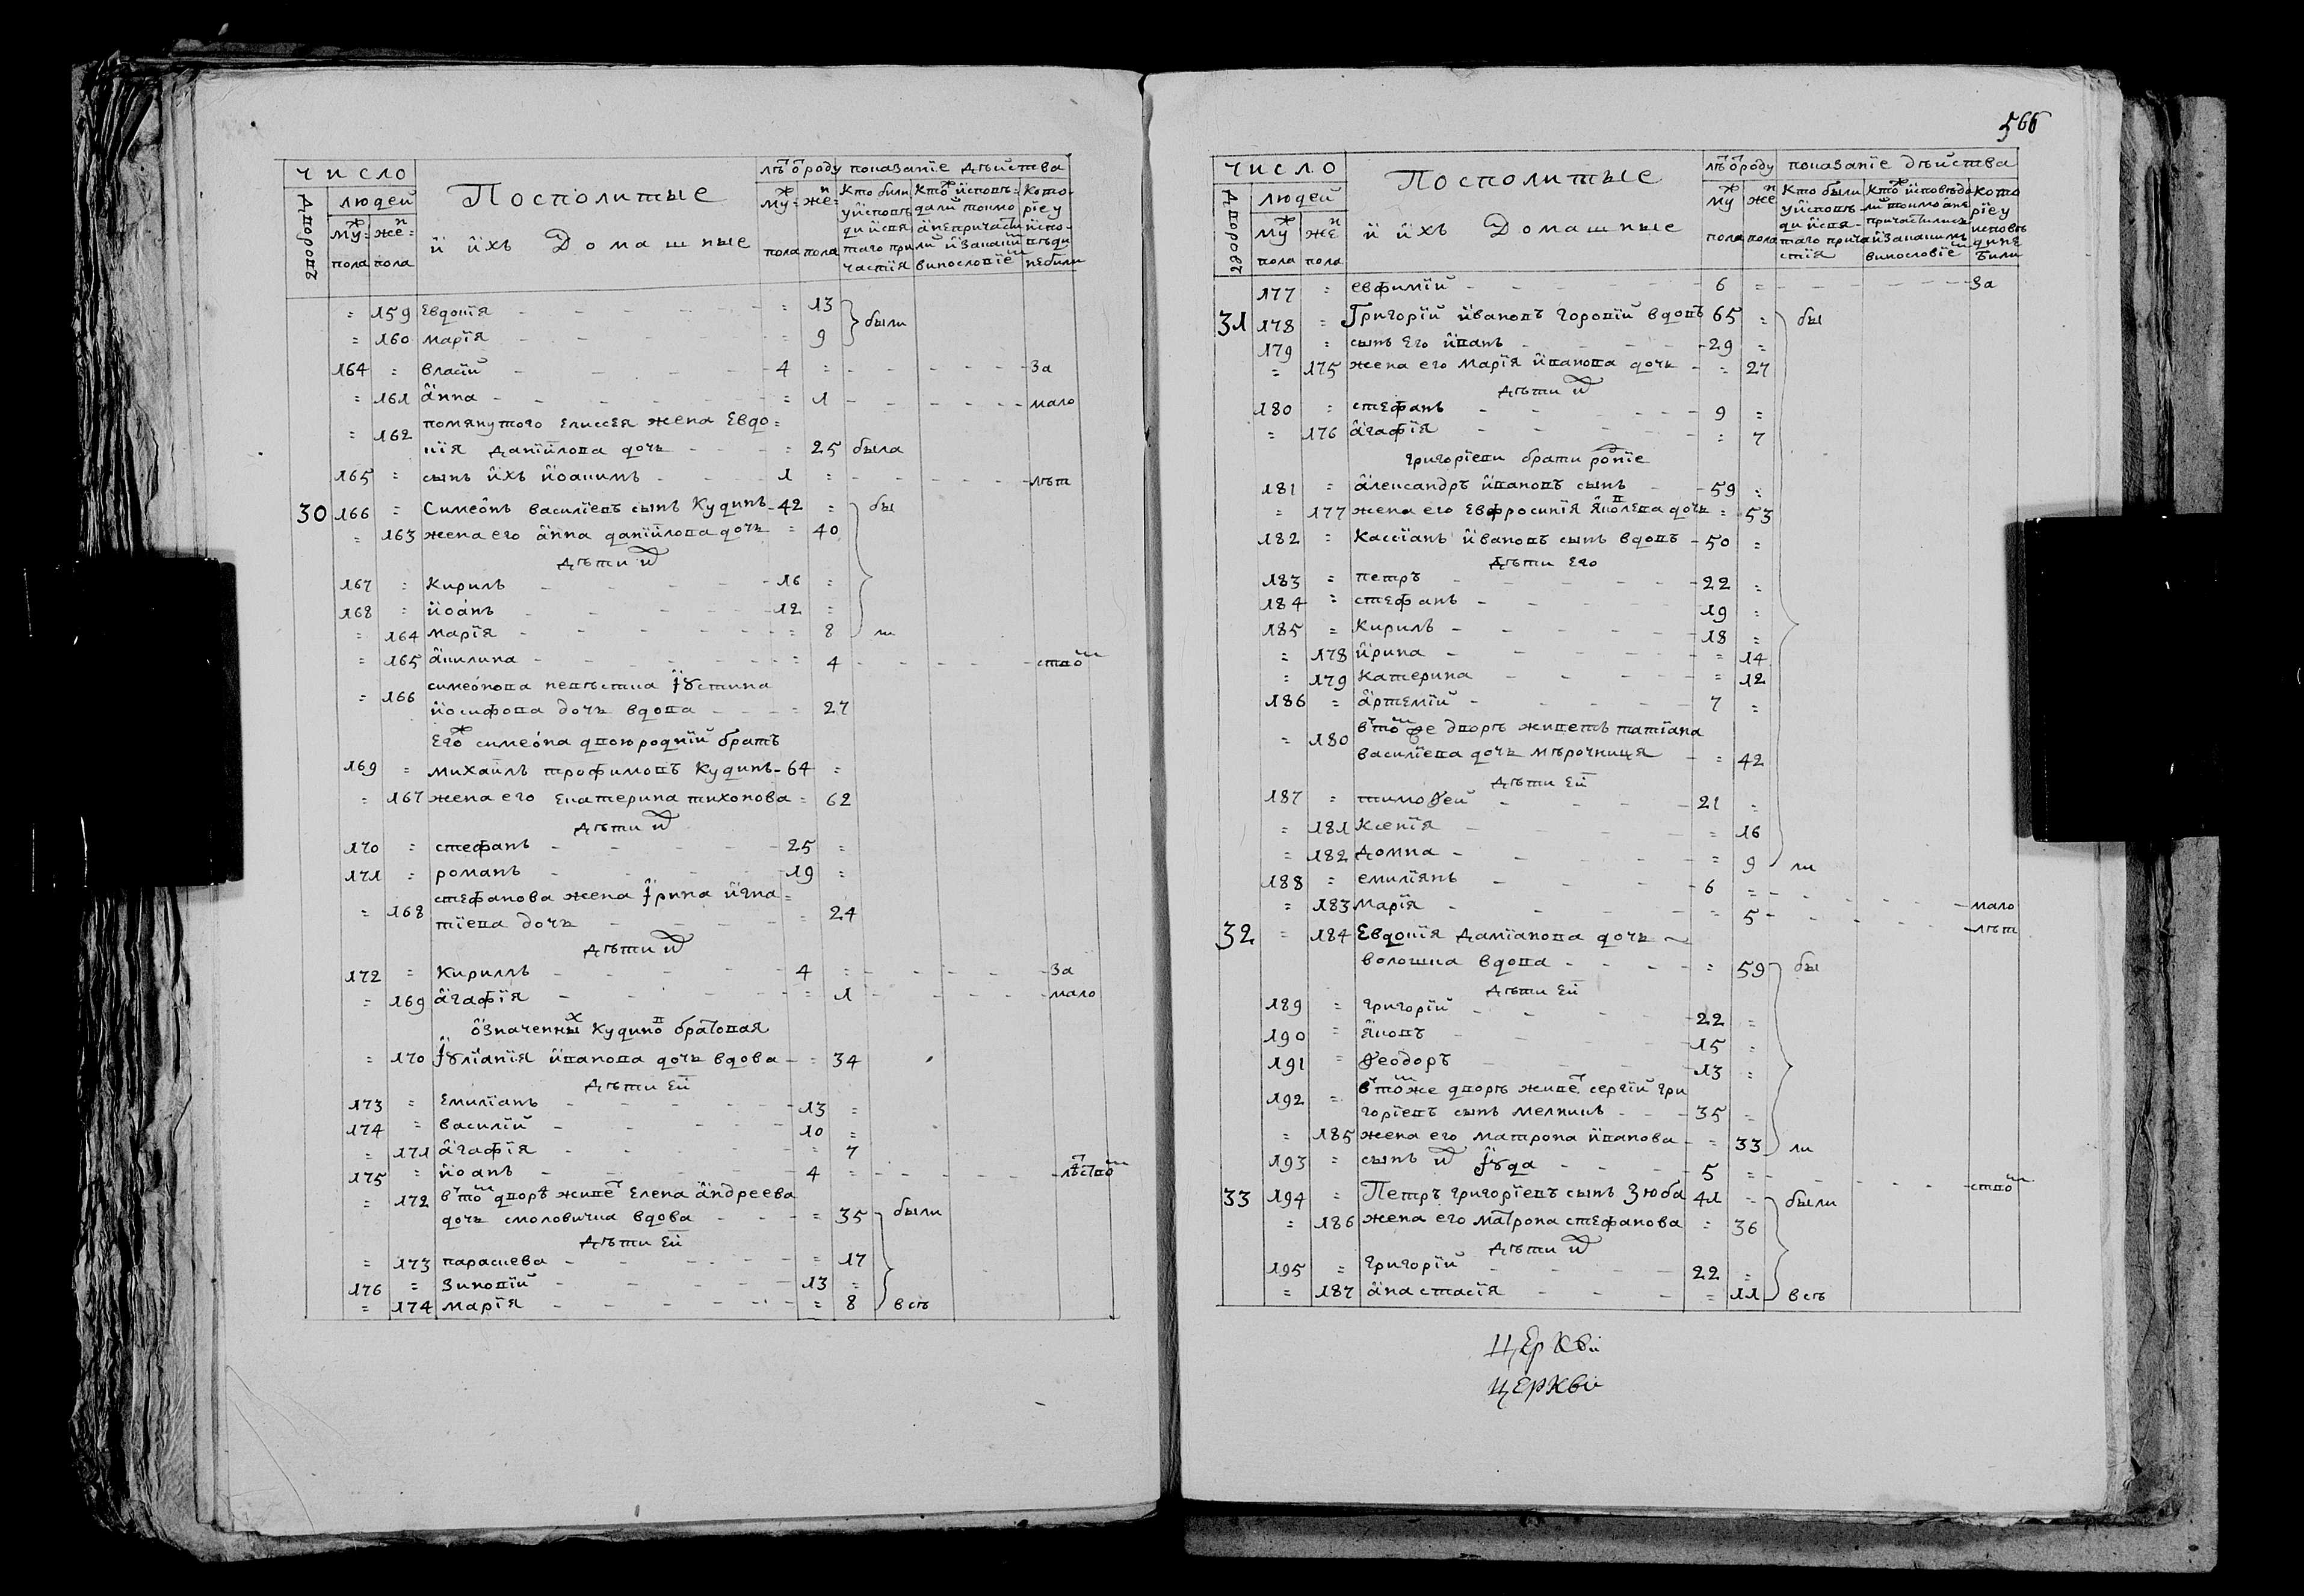 число
Посполитые
лѣт ѿ роду
показанїе дѣйства
дворовъ
людей
муж: жен:
пола пола
и ихъ Домашные
муж: жен:
пола пола
Кто были у исповѣди и святаго причастїя
Ктож исповѣдали токмо а непричастили и заКакимъ винословїемъ
Которїе у исповѣди небили
= 159 Евдокїя - = 13 были
= 160 марїя - = 9
164 = власїй - 4 = - За
= 161 анна - = 1 - мало
= 162 помянутого Елисея жена Евдо=
кїя данїилова дочь - = 25 была
165 = сынъ ихъ иоакимъ - 1 = - лѣт
30 166 = Симеонъ василїевъ сынъ Кудинъ - 42 = бы
= 163 жена его анна данїилова дочь = 40
дѣти их
167 = Кирилъ - 16 =
168 = иоанъ - 12 =
= 164 марїя - = 8 ли
= 165 акилина - = 4 - ством
= 166 симеонова невѣстка їустина
иосифова дочь вдова - = 27
Егож симеона двоюродній братъ
169 = михаилъ трофимовъ Кудинъ - 64 =
= 167 жена его Екатерина тихонова = 62
дѣти их
170 = стефанъ - 25 =
171 = романъ - 19 =
= 168 стефанова жена їрина игна=
тїева дочь - = 24
дѣти их
172 = Кирилъ - 4 = - За
= 169 агафїя - = 1 - мало
означенных Кудинов братовая
= 170 їулїанїя иванова дочь вдова - = 34
дѣти Ей
173 = Емилїанъ - 13 =
174 = василїй - 10 =
= 171 агафїя - = 7
175 = иоанъ - 4 = - лѣтством
= 172 в том дворѣ живет Елена андреева
дочь смоловичка вдова - = 35 были
дѣти Ей
= 173 параскева - = 17
176 = Зиновїй - 13 =
= 174 марїя - = 8 всѣ
566
число
Посполитые
лѣт ѿ роду
показанїе дѣйства
дворовъ
людей
муж жен
пола пола
и ихъ Домашные
муж жен
пола пола
Кто были у исповѣди и святаго причастїя
Ктож исповѣдали токмо а не причастились и заКакимъ винословїем
Которїе у исповѣди не були
177 = евфимїй - 6 = - За
31 178 = Григорїй ивановъ Горовїй вдовъ 65 = бы
179 = сынъ Его иванъ - 29 =
= 175 жена его марїя иванова дочь - = 27
дѣти их
180 = стефанъ - 9 =
= 176 агафїя - = 7
григорїеви брати родніе
181 = александръ ивановъ сынъ - 59 =
= 177 жена его Евфросинїя яковлева дочь = 53
182 = Кассїанъ ивановъ сынъ вдовъ - 50 =
дѣти Его
183 = петръ - 22 =
184 = стефанъ - 19 =
185 = Кирилъ - 18 =
= 178 ирина - = 14
= 179 Катерина - = 12
186 = артемїй - 7 =
= 180 в том же дворѣ живетъ татїана
василїева дочь мѣрочниця - = 42
дѣти Ей
187 = тимоѳей - 21 =
= 181 Ксенїя - = 16
= 182 домна - = 9 ли
188 = емилїянъ - 6 = - мало
= 183 марїя - = 5 - лѣт
32 = 184 Евдокїя дамїанова дочь
волошка вдова - = 59 бы
дѣти Ей
189 = григорїй - 22 =
190 = яковъ - 15 =
191 = ѳеодоръ - 13 =
192 = в том же дворѣ живет сергїй гри
горїевъ сынъ мелникъ - 35 =
= 185 жена его матрона иванова - = 33 ли
193 = сынъ их їуда - 5 = - ством
33 194 = Петръ григорїевъ сынъ Зюба 41 = были
= 186 жена его матрона стефанова = 36
дѣти их
195 = григорїй - 22 =
= 187 анастасїя - = 11 всѣ
ЦЕрКви
ЦЕрКви